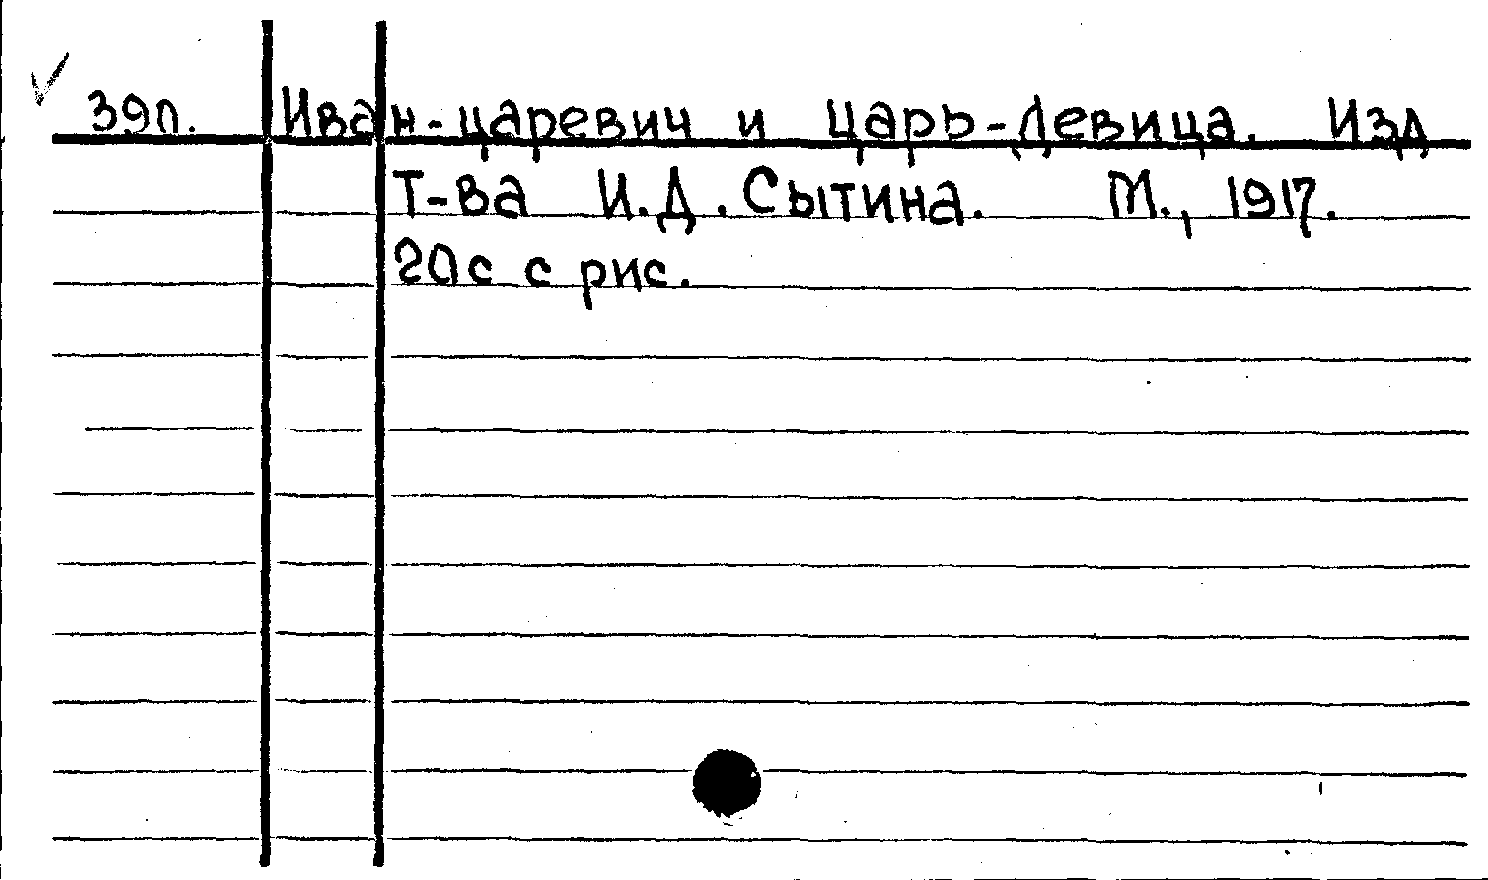 39п. Иван-царевич и Царь-Девица. Изд
Т-ва И.Д.Сытина. М., 1917.
20с с рис.